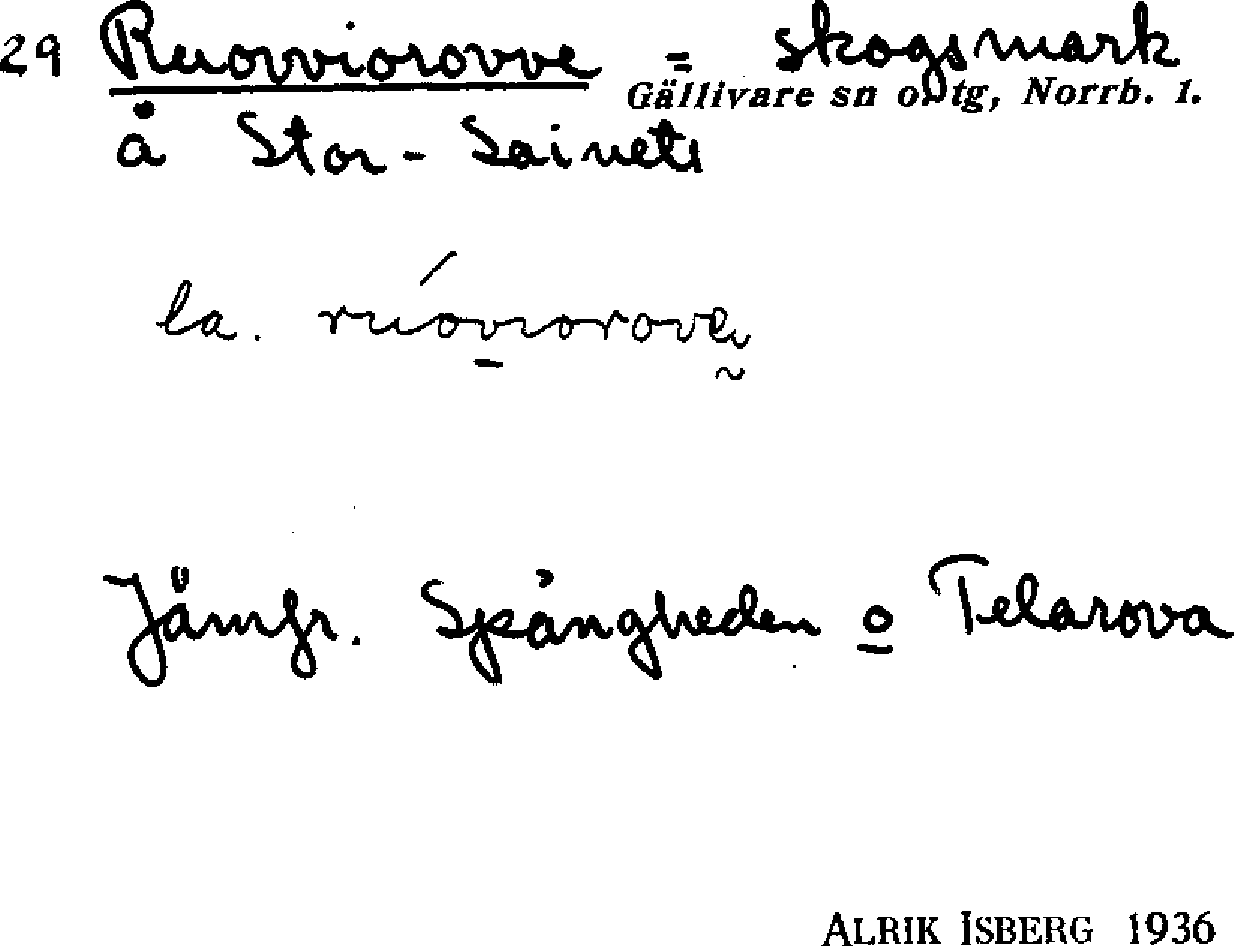 29 Ruovviorovve = skogsmark
Gällivare sn o. tg, Norrb. l.
å Stor-Saivets
la. rúoviorove
Jämfr. Spångheden o Telarova
ALRIK ISBERG 1936